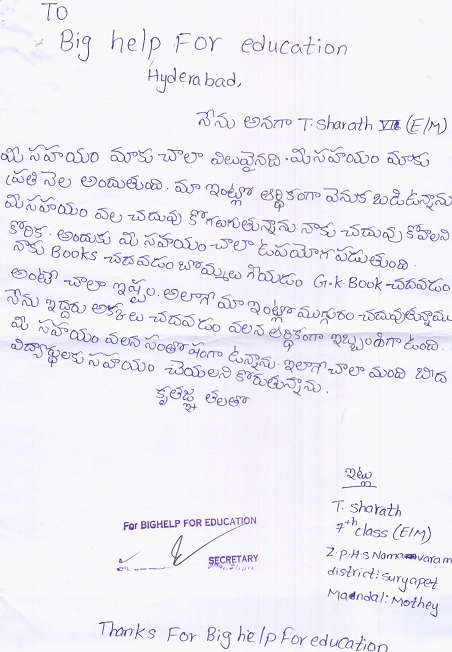 To
Big help For education
Hyderabad,
నేను అనగా T. Sharath VII (E/M)
మీ సహాయం మాకు చాలా విలువైనది. మీ సహాయం మాకు
ప్రతి నెల అందుతుంది. మా ఇంట్లో ఆర్థికంగా వెనుక బడిఉన్నాను
మీ సహాయం వల్ల చదువు కోగలుగుతున్నాను నాకు చదువు కోవాలని
కోరిక. అందుకు మీ సహాయం చాలా ఉపయోగపడుతుంది.
నాకు Books చదవడం బొమ్మలు గీయడం G.k. Book చదవడం
అంటే చాలా ఇష్టం. అలాగే మా ఇంట్లో ముగ్గురం చదువుతున్నాము
నేను ఇద్దరు అక్కలు చదవడం వలన ఆర్థికంగా ఇబ్బందిగా ఉంది.
మీ సహాయం వలన సంతోషంగా ఉన్నాను. ఇలాగే చాలా మంది బీద
విద్యార్థులకు సహాయం చేయలని కోరుతున్నాను.
కృతజ్ఞ తలతో
ఇట్లు
T. Sharath
7th class (E/M)
Z.P.H.S Namavaram
district: Suryapet
Mandal: Mothey
For BIGHELP FOR EDUCATION
SECRETARY
Thanks For Big help For education